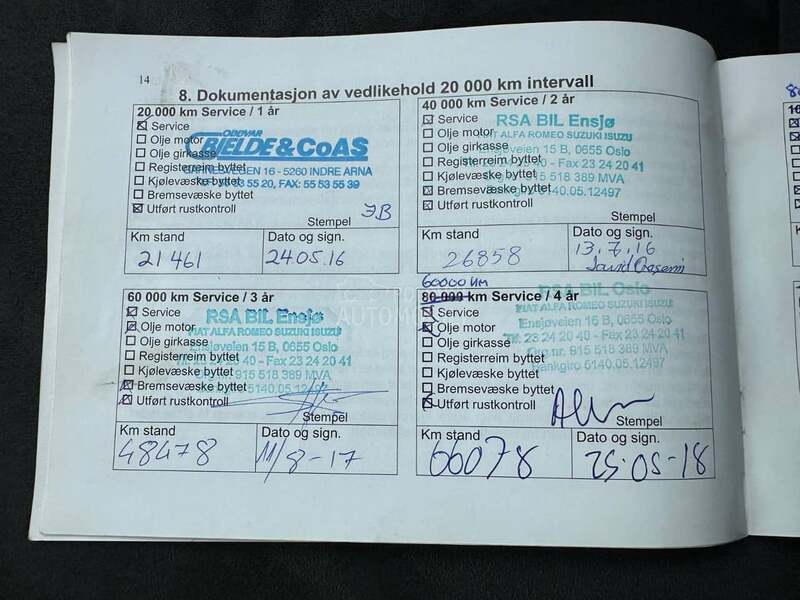 14
8. Dokumentasjon av vedlikehold 20 000 km intervall
20 000 km Service / 1 år
Service
Olje motor
Olje girkasse
Registerreim byttet
Kjølevæske byttet
Bremsevæske byttet
Utført rustkontroll
ODDVAR
BJELDE & Co AS
5260 INDRE ARNA
FAX: 55 53 55 39
Stempel
Km stand
21 461
Dato og sign.
24.05.16
40 000 km Service / 2 år
Service
Olje motor
Olje girkasse
Registerreim byttet
Kjølevæske byttet
Bremsevæske byttet
Utført rustkontroll
RSA BIL Ensjø
FIAT ALFA ROMEO SUZUKI ISUZU
Ensjøveien 15 B, 0655 Oslo
Fax 23 24 20 41
915 518 389 MVA
6140.05.12497
Stempel
Km stand
26858
Dato og sign.
13.7.16
60 000 km Service / 3 år
Service
Olje motor
Olje girkasse
Registerreim byttet
Kjølevæske byttet
Bremsevæske byttet
Utført rustkontroll
RSA BIL Ensjø
FIAT ALFA ROMEO SUZUKI ISUZU
Ensjøveien 15 B, 0655 Oslo
Fax 23 24 20 41
915 518 389 MVA
Stempel
Km stand
48478
Dato og sign.
11/8-17
60000 km
80 000 km Service / 4 år
Service
Olje motor
Olje girkasse
Registerreim byttet
Kjølevæske byttet
Bremsevæske byttet
Utført rustkontroll
RSA BIL Oslo
FIAT ALFA ROMEO SUZUKI ISUZU
Ensjøveien 15 B, 0655 Oslo
Tlf. 23 24 20 40 - Fax 23 24 20 41
Org.nr. 915 518 389 MVA
Bankgiro 6140.05.12497
Stempel
Km stand
66078
Dato og sign.
25.05-18